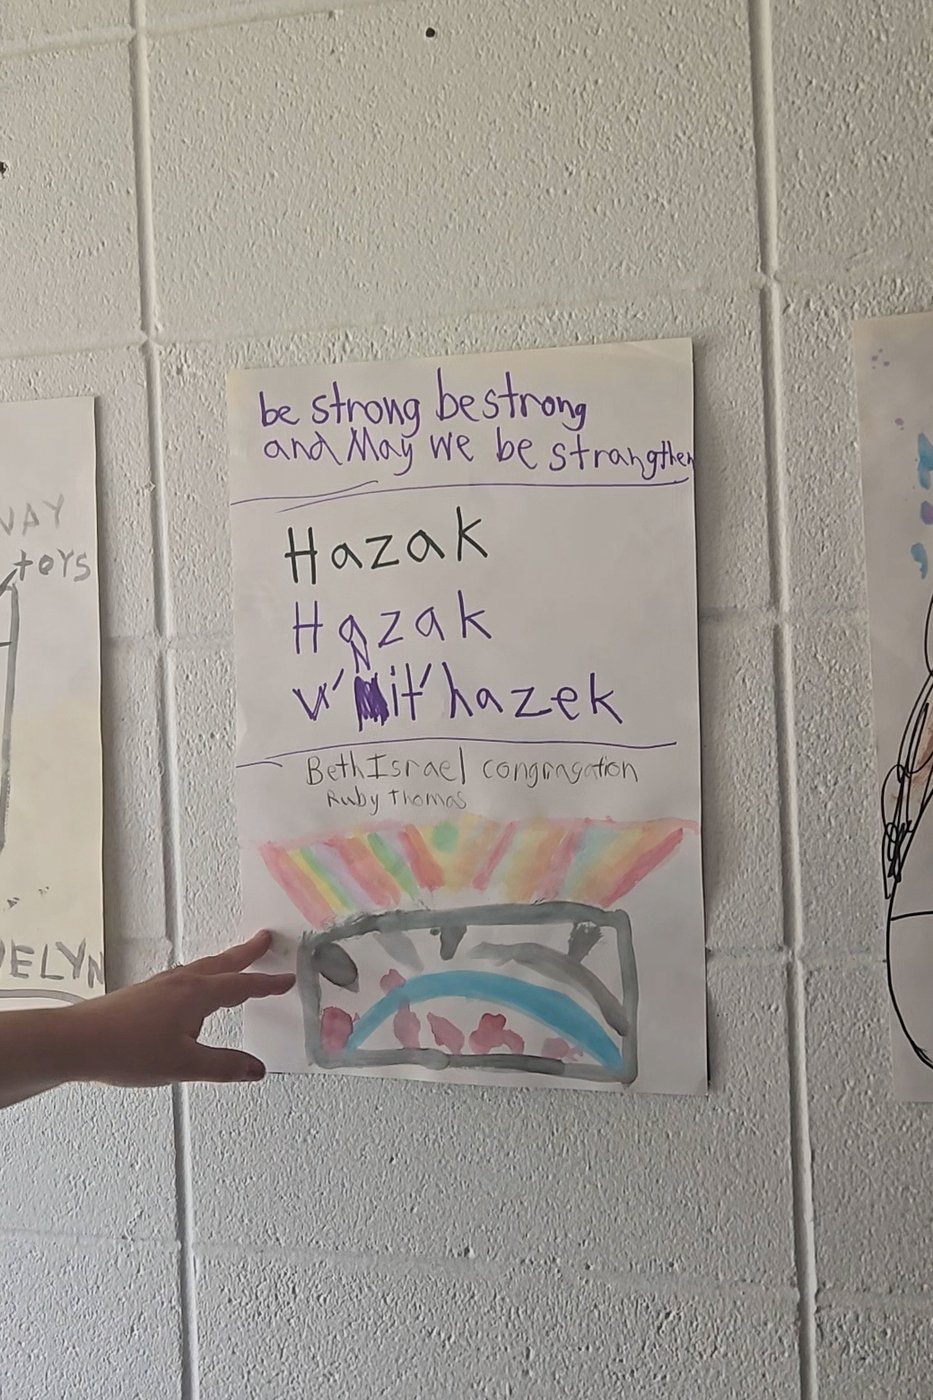 be strong be strong
and May we be strangthen
Hazak
Hazak
v'Nit'hazek
Beth Israel congragation
Ruby Thomas
toys